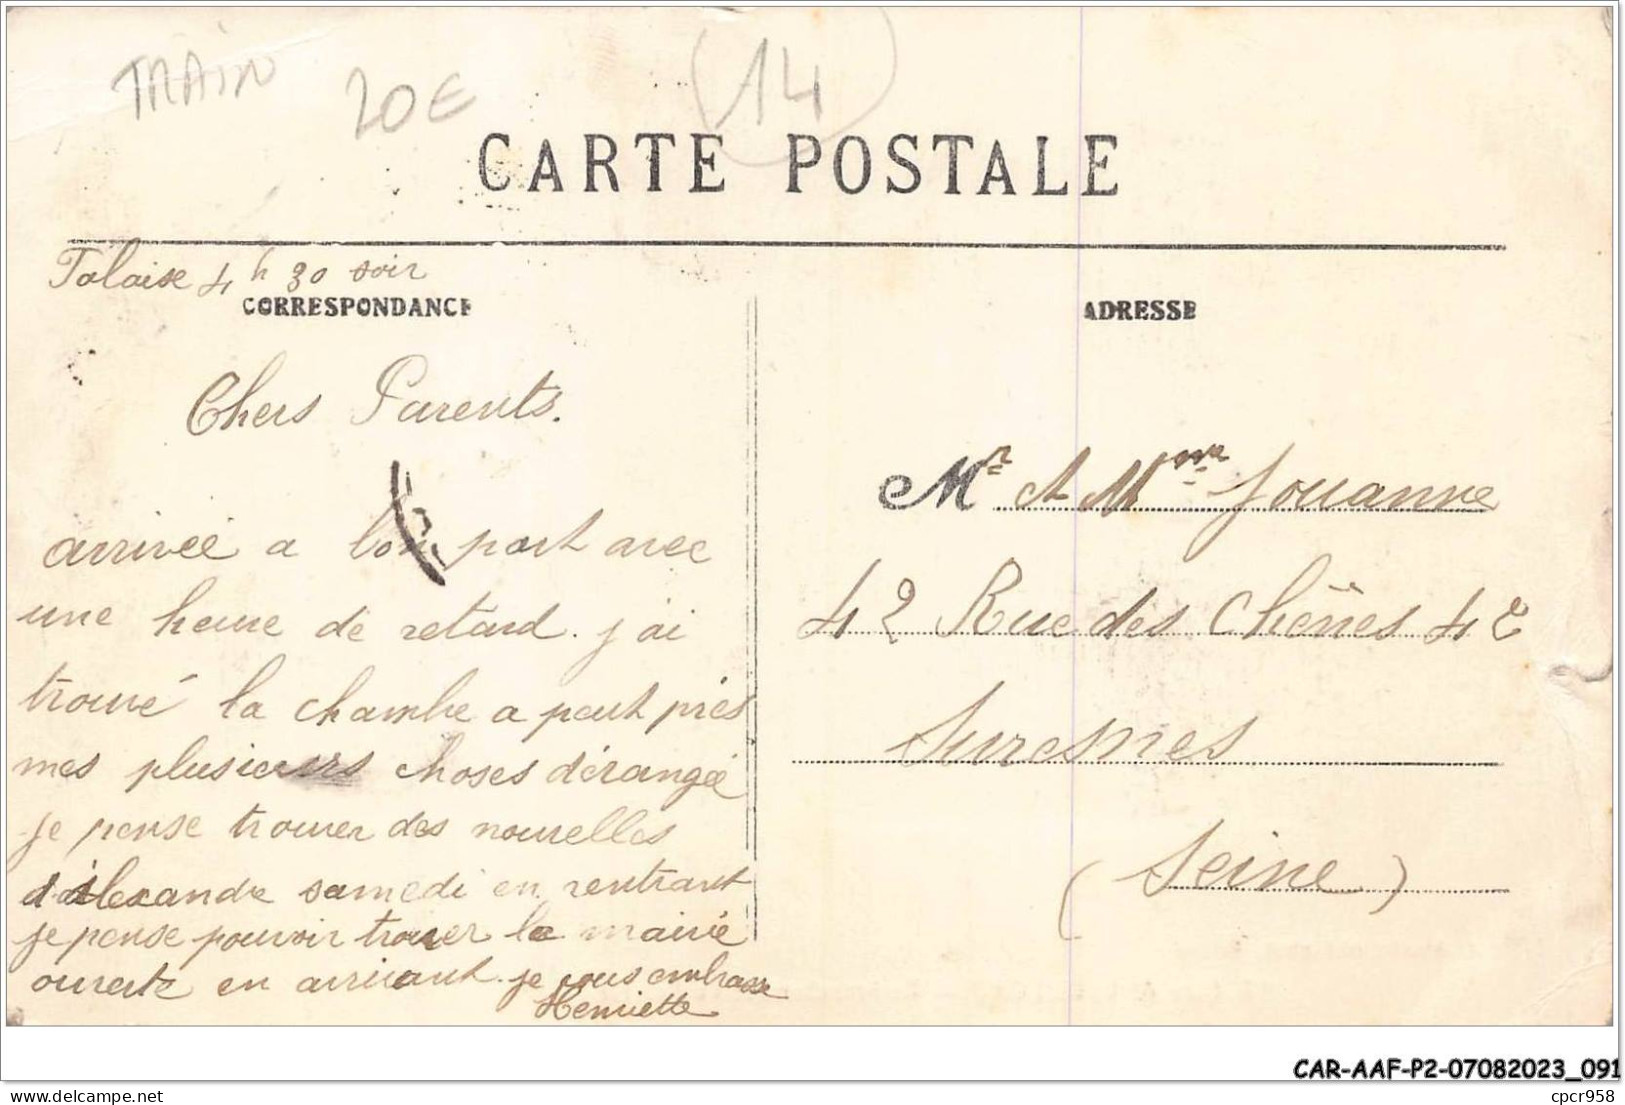 TRAIN
20€
(14)
CARTE POSTALE
Falaise 4 h 30 soir
CORRESPONDANCE
Chers Parents.
arrivée a bon port avec
une heure de retard. j'ai
trouvé la chambe a peut près
mes plusieurs choses dérangée
je pense trouver des nouvelles
d'alexandre samedi en rentrant
je pense pouvoir trouver la mairie
ouverte en arrivant. je vous embrasse
Henriette
ADRESSE
Mr et Mme Jouanne
42 Rue des Chênes 42
Suresnes
(Seine)
CAR-AAF-P2-07082023_091
www.delcampe.net
cpcr958